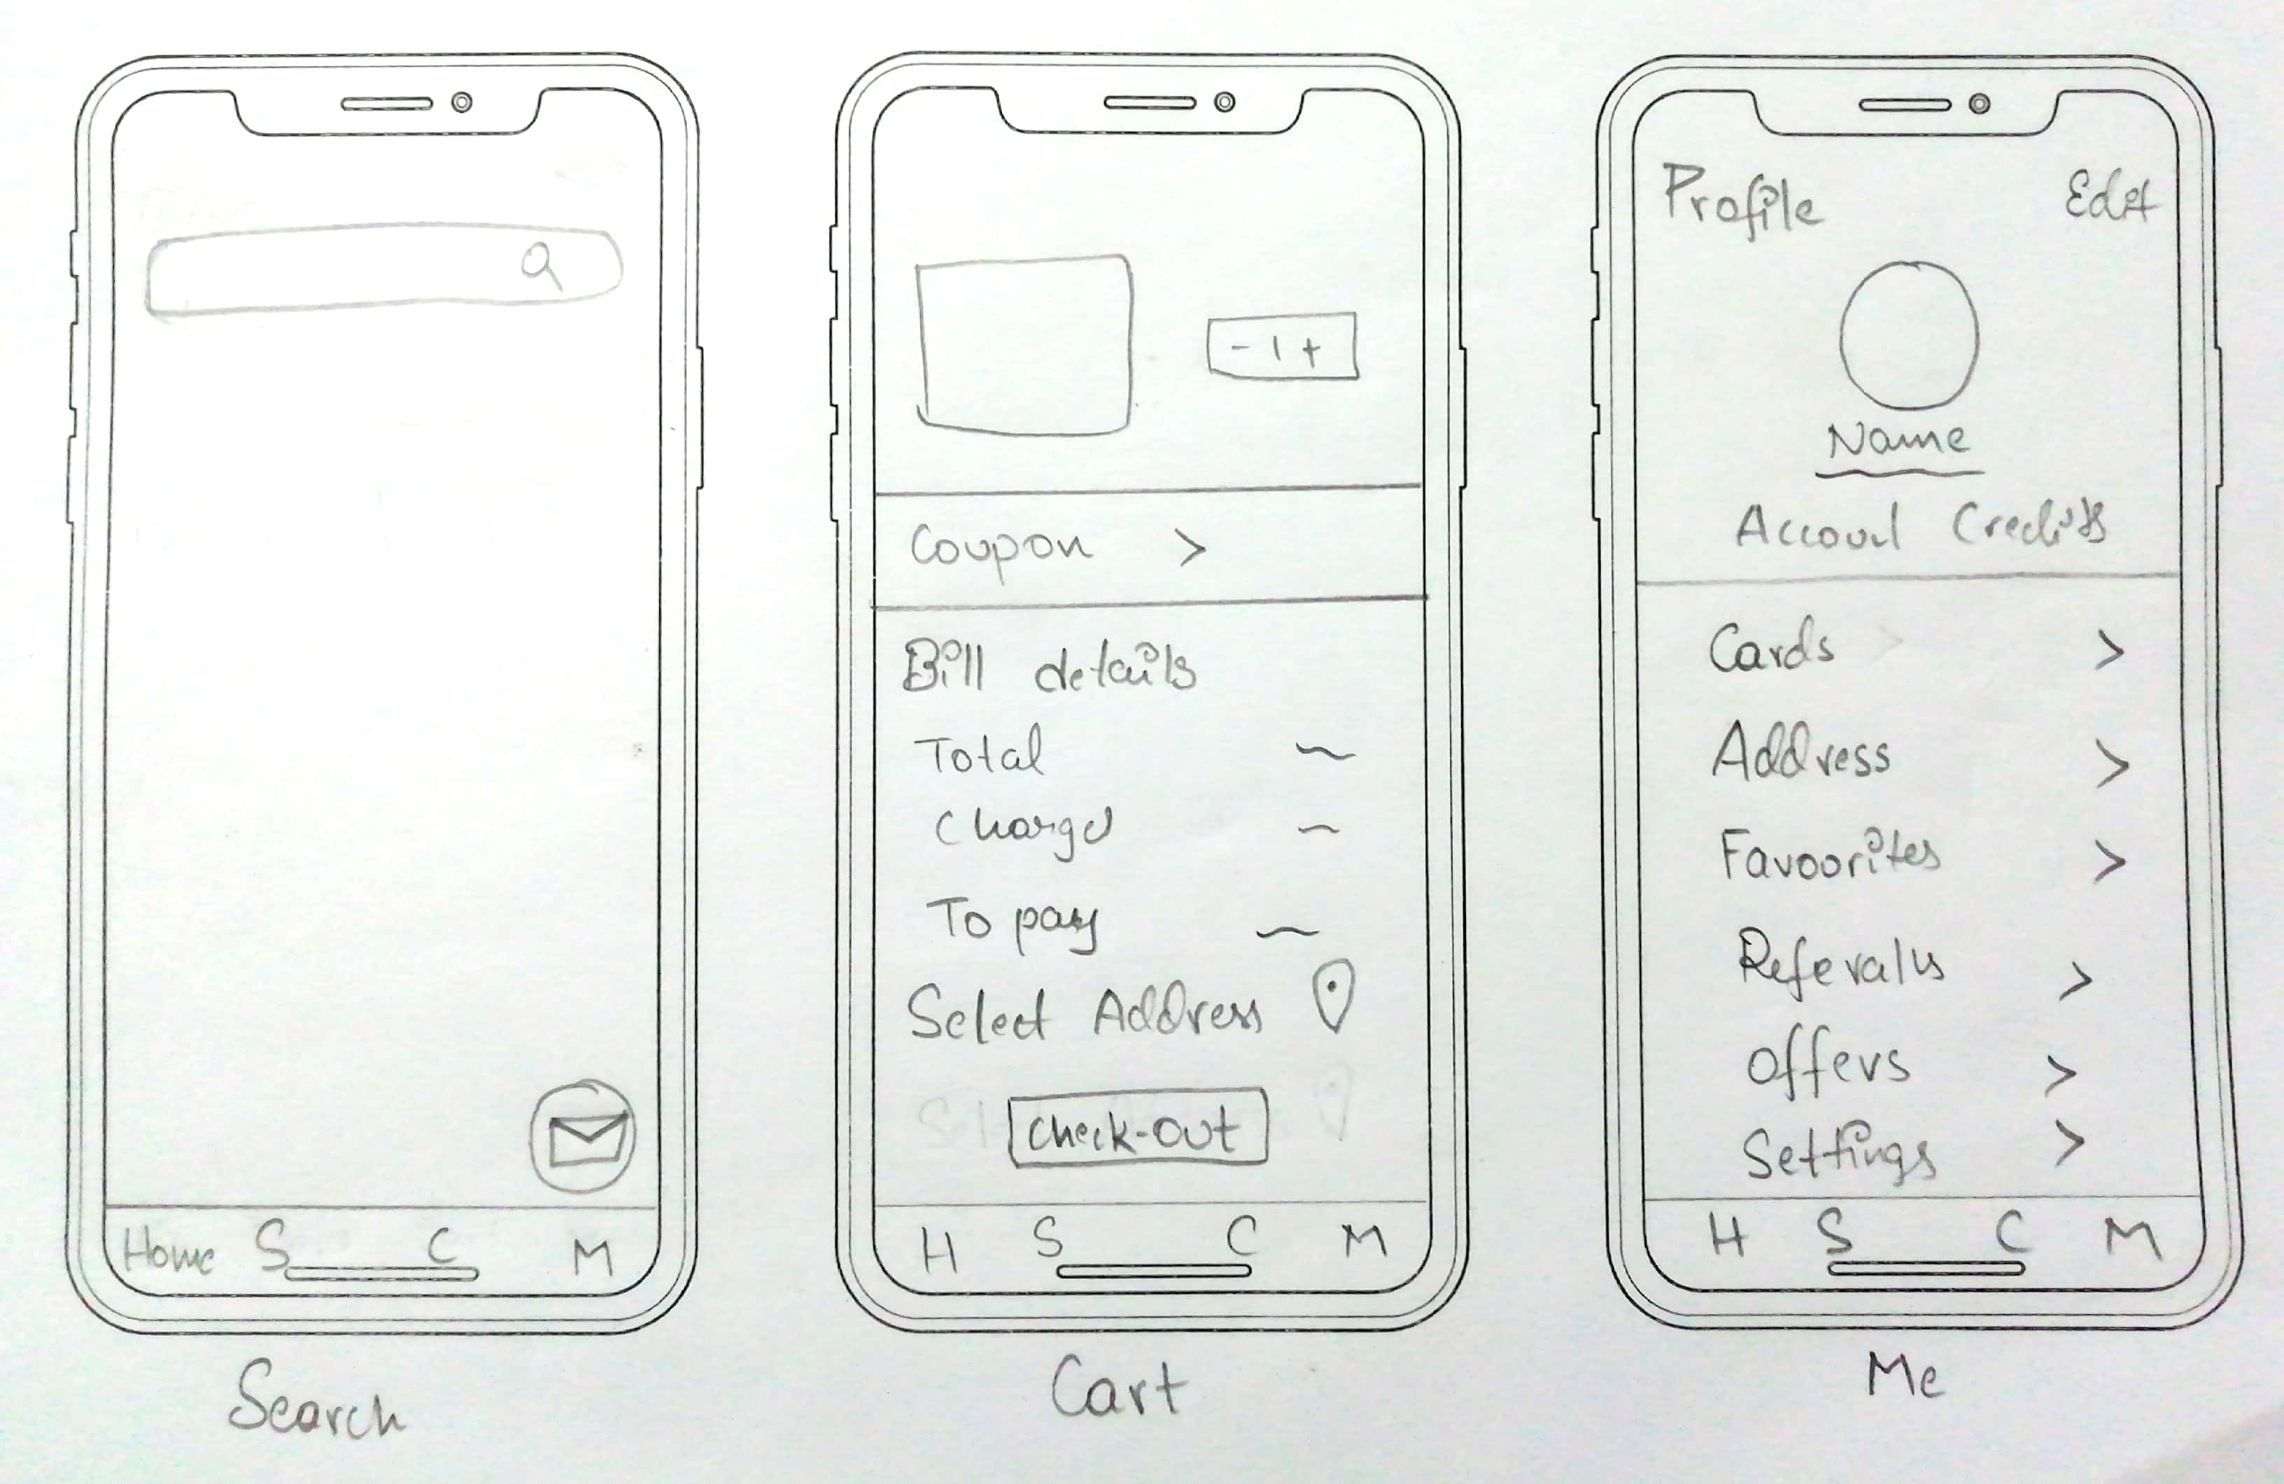 Home S C M
Search
- 1 +
Coupon >
Bill details
Total
Charges
To pay
Select Address
Check-out
H S C M
Cart
Profile Edit
Name
Account Credits
Cards >
Address >
Favoorites >
Referals >
Offers >
Settings >
H S C M
Me